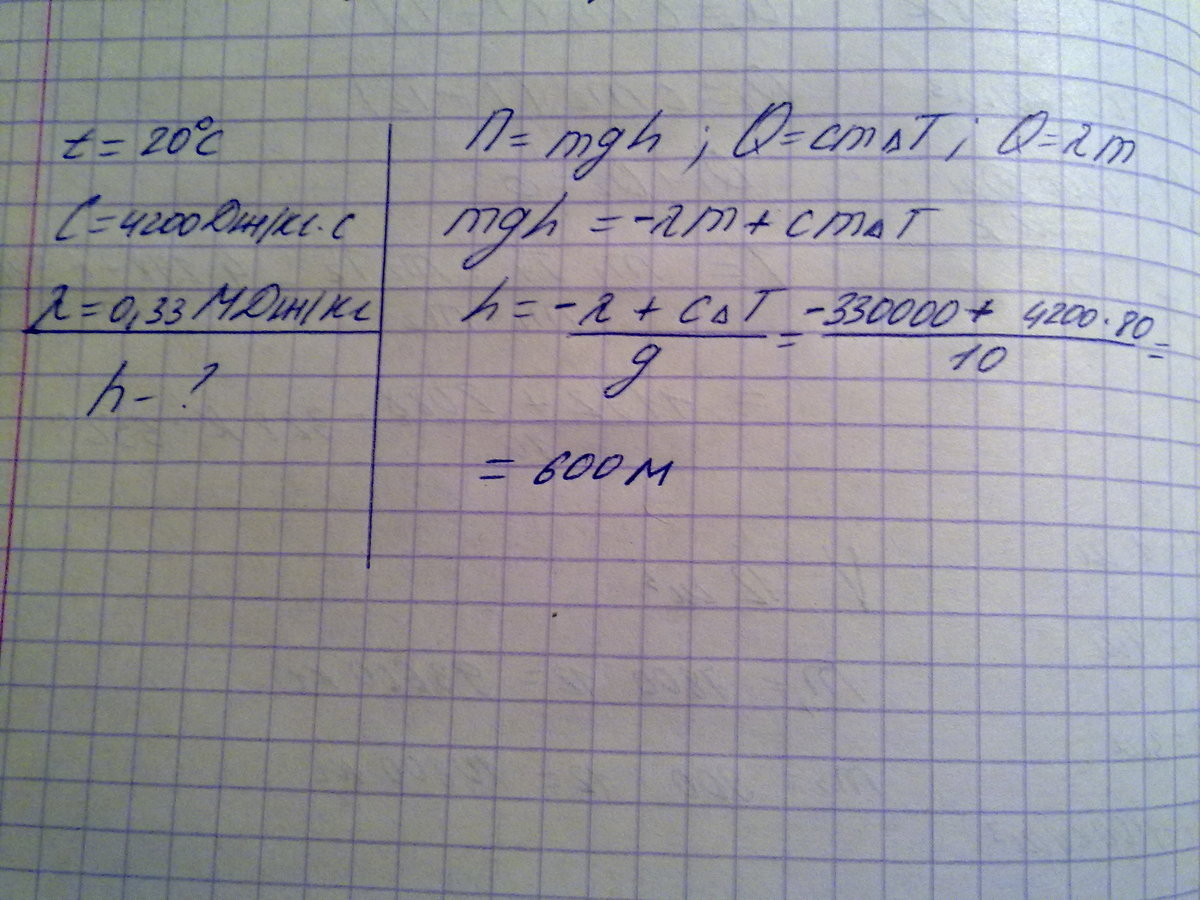 t = 20°C
C = 4200 Дж/кг·с
λ = 0,33 МДж/кг
h - ?
П = mgh ; Q = cm△T ; Q = λm
mgh = -λm + cm△T
h = -λ + c△T / g = -330000 + 4200·80 / 10 =
= 600 м